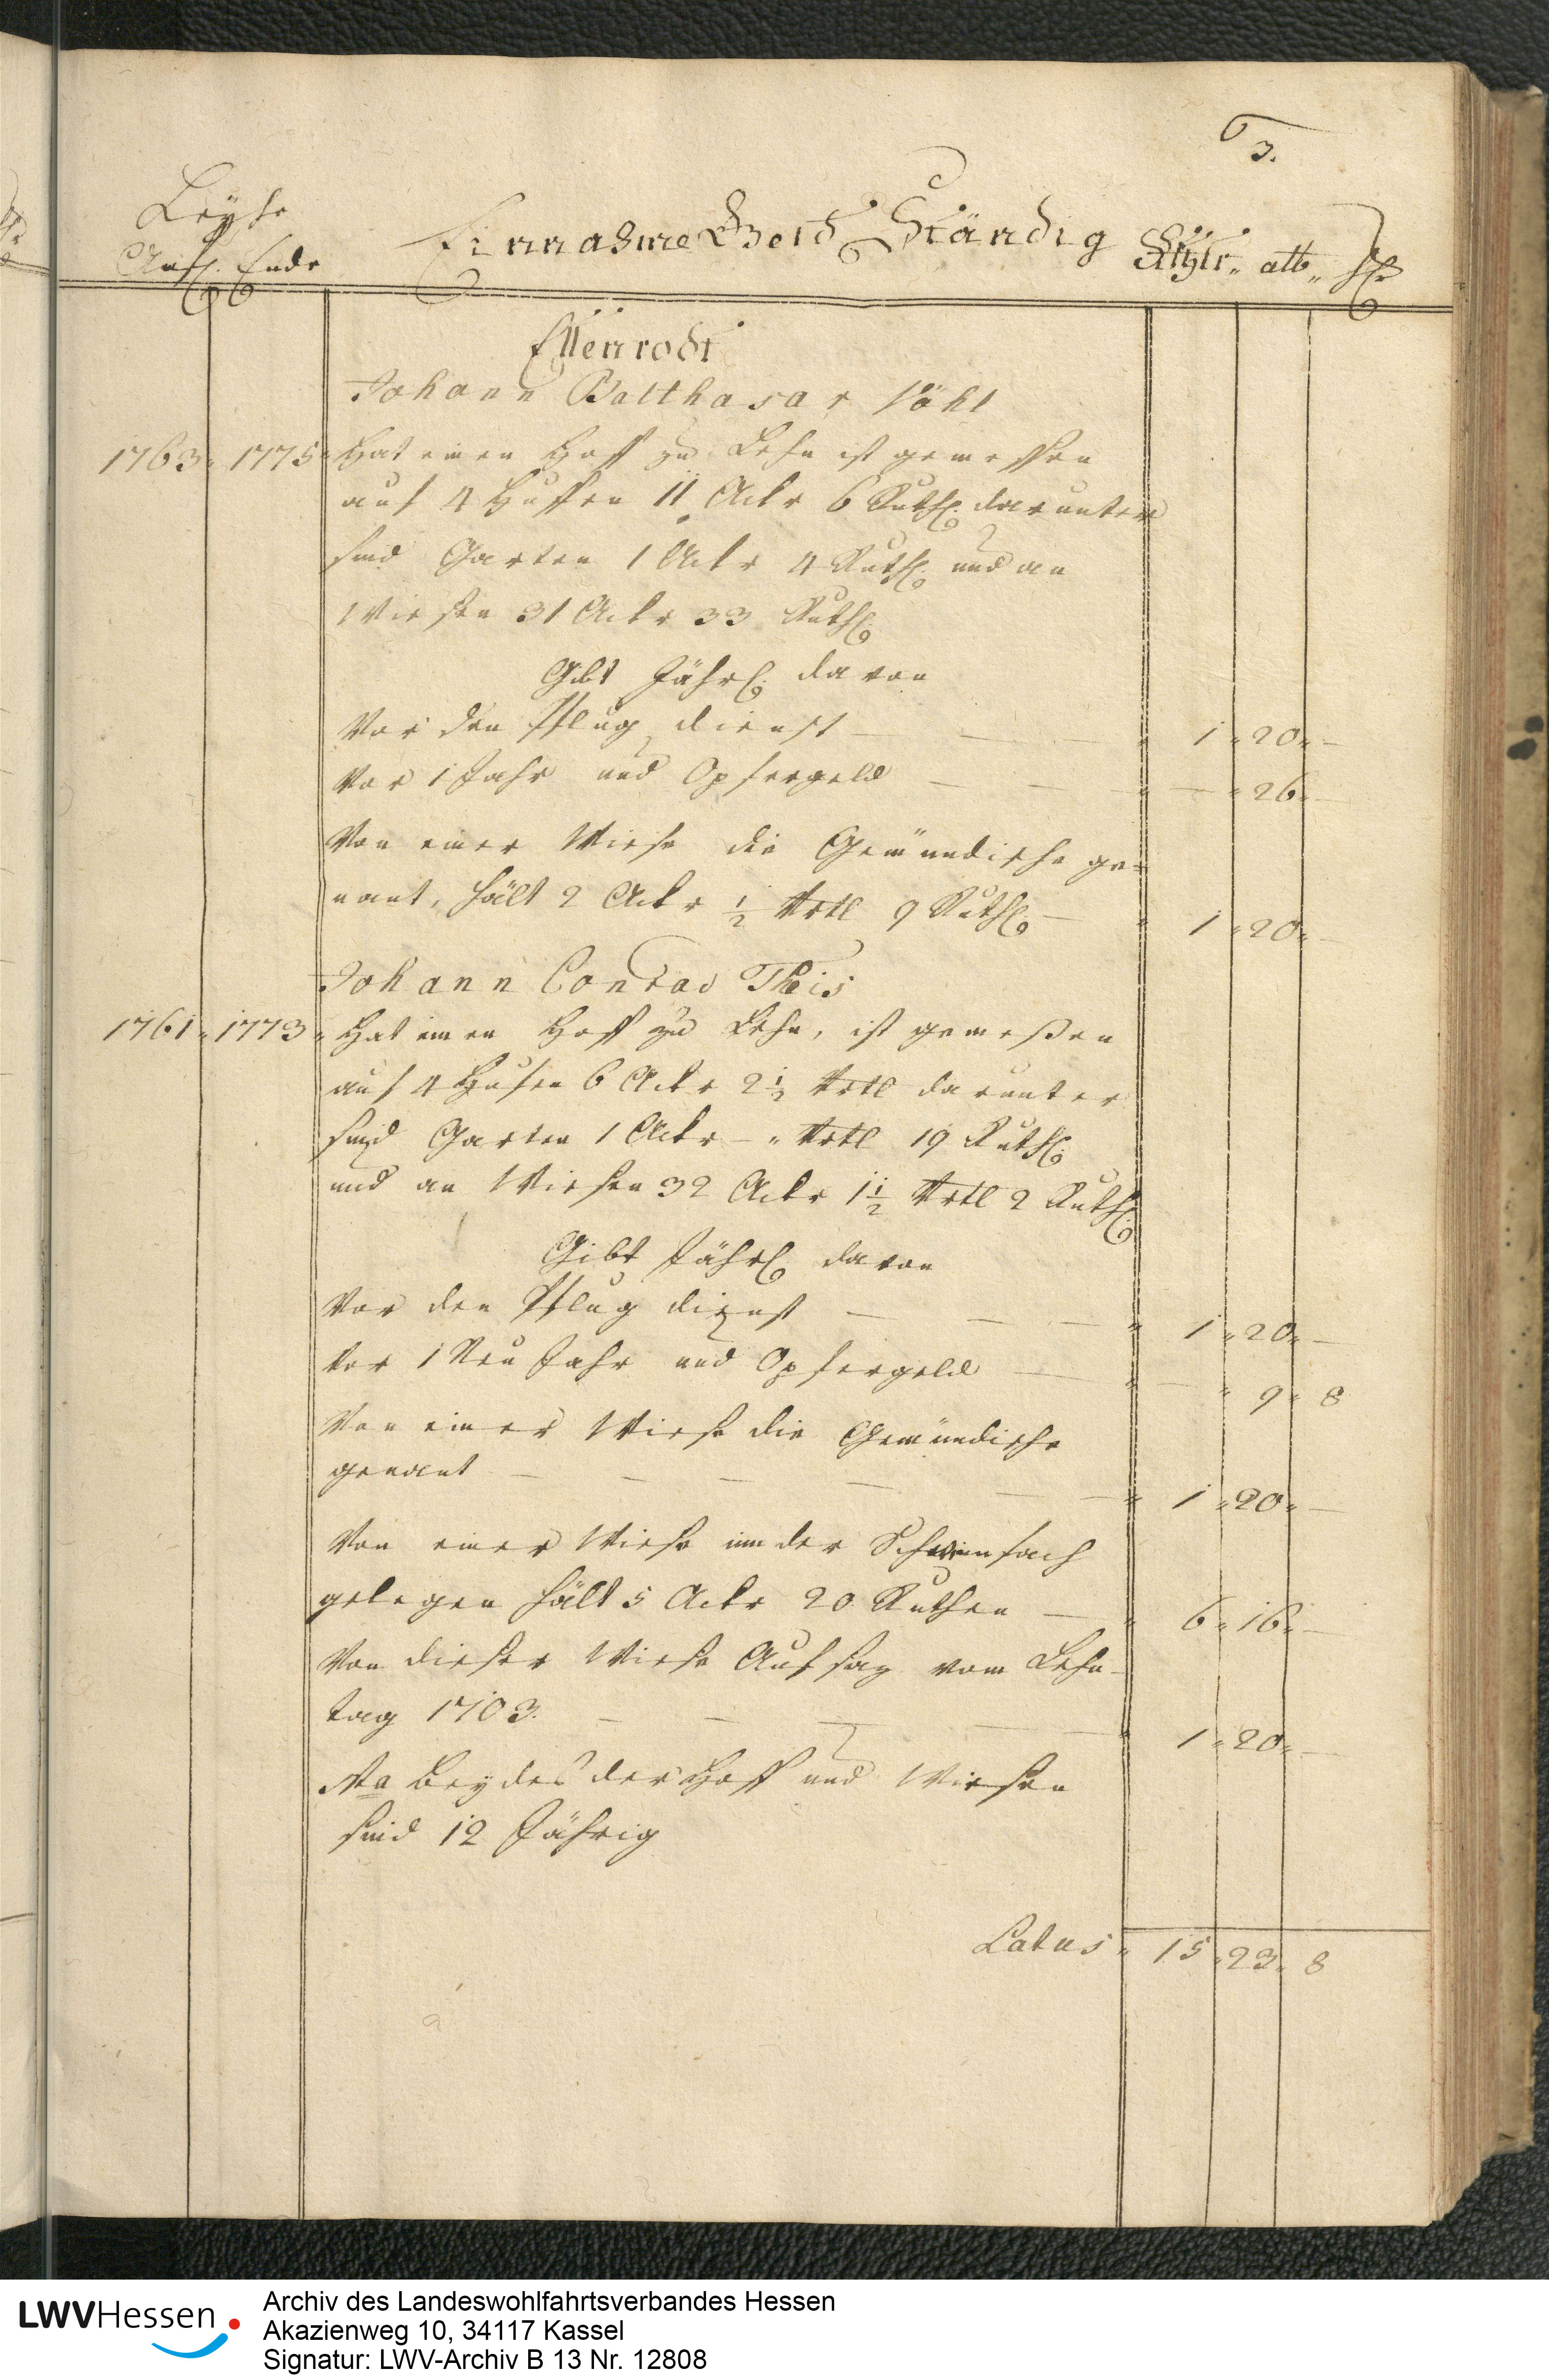 3.
Leyhe
Anf. Ende Einnahme Geld Ständig Rthlr. alb. hlr
Ellenrodt
Johann Balthasar Söhl
1763. 1775. Hat einen Hoff zu Lehn ist gemessen
auf 4 Huffen 11 Ackr 6 Ruth. darunter
sind Garten 1 Ackr 4 Ruth. und an
Wiesen 31 Ackr 33 Ruth.
Gibt Jährl. davon
Vor den Pflug dienst — — — " 1 " 20 " —
Vor 1 Jahr und Opfergeld — — — " — " 26 " —
Von einer Wiese die Gemündische ge=
nant, hält 2 Ackr ½ Vrtl 9 Ruth. — " 1 " 20 " —
Johann Conrad Theis
1761. 1773. Hat einen Hoff zu Lehn, ist gemeßen
auf 4 Hufen 6 Ackr 2½ Vrtl darunter
sind Garten 1 Ackr — " Vrtl 19 Ruth.
und an Wiesen 32 Ackr 1½ Vrtl 2 Ruth.
Gibt Jährl. davon
Vor den Pflug dienst — — — " 1 " 20 " —
Vor 1 Neu Jahr und Opfergeld — " — " 9 " 8
Von einer Wiese die Gemündische
genant — — — — — — " 1 " 20 " —
Von einer Wiese in der
gelegen hält 5 Ackr 20 Ruthen — " 6 " 16 " —
Von dieser Wiese Aufsaz vom Lehn-
tag 1703. — — — — — " 1 " 20 " —
Nta Beydes der Hoff und Wiesen
sind 12 Jährig
Latus " 15 " 23 " 8
LWVHessen
Archiv des Landeswohlfahrtsverbandes Hessen
Akazienweg 10, 34117 Kassel
Signatur: LWV-Archiv B 13 Nr. 12808